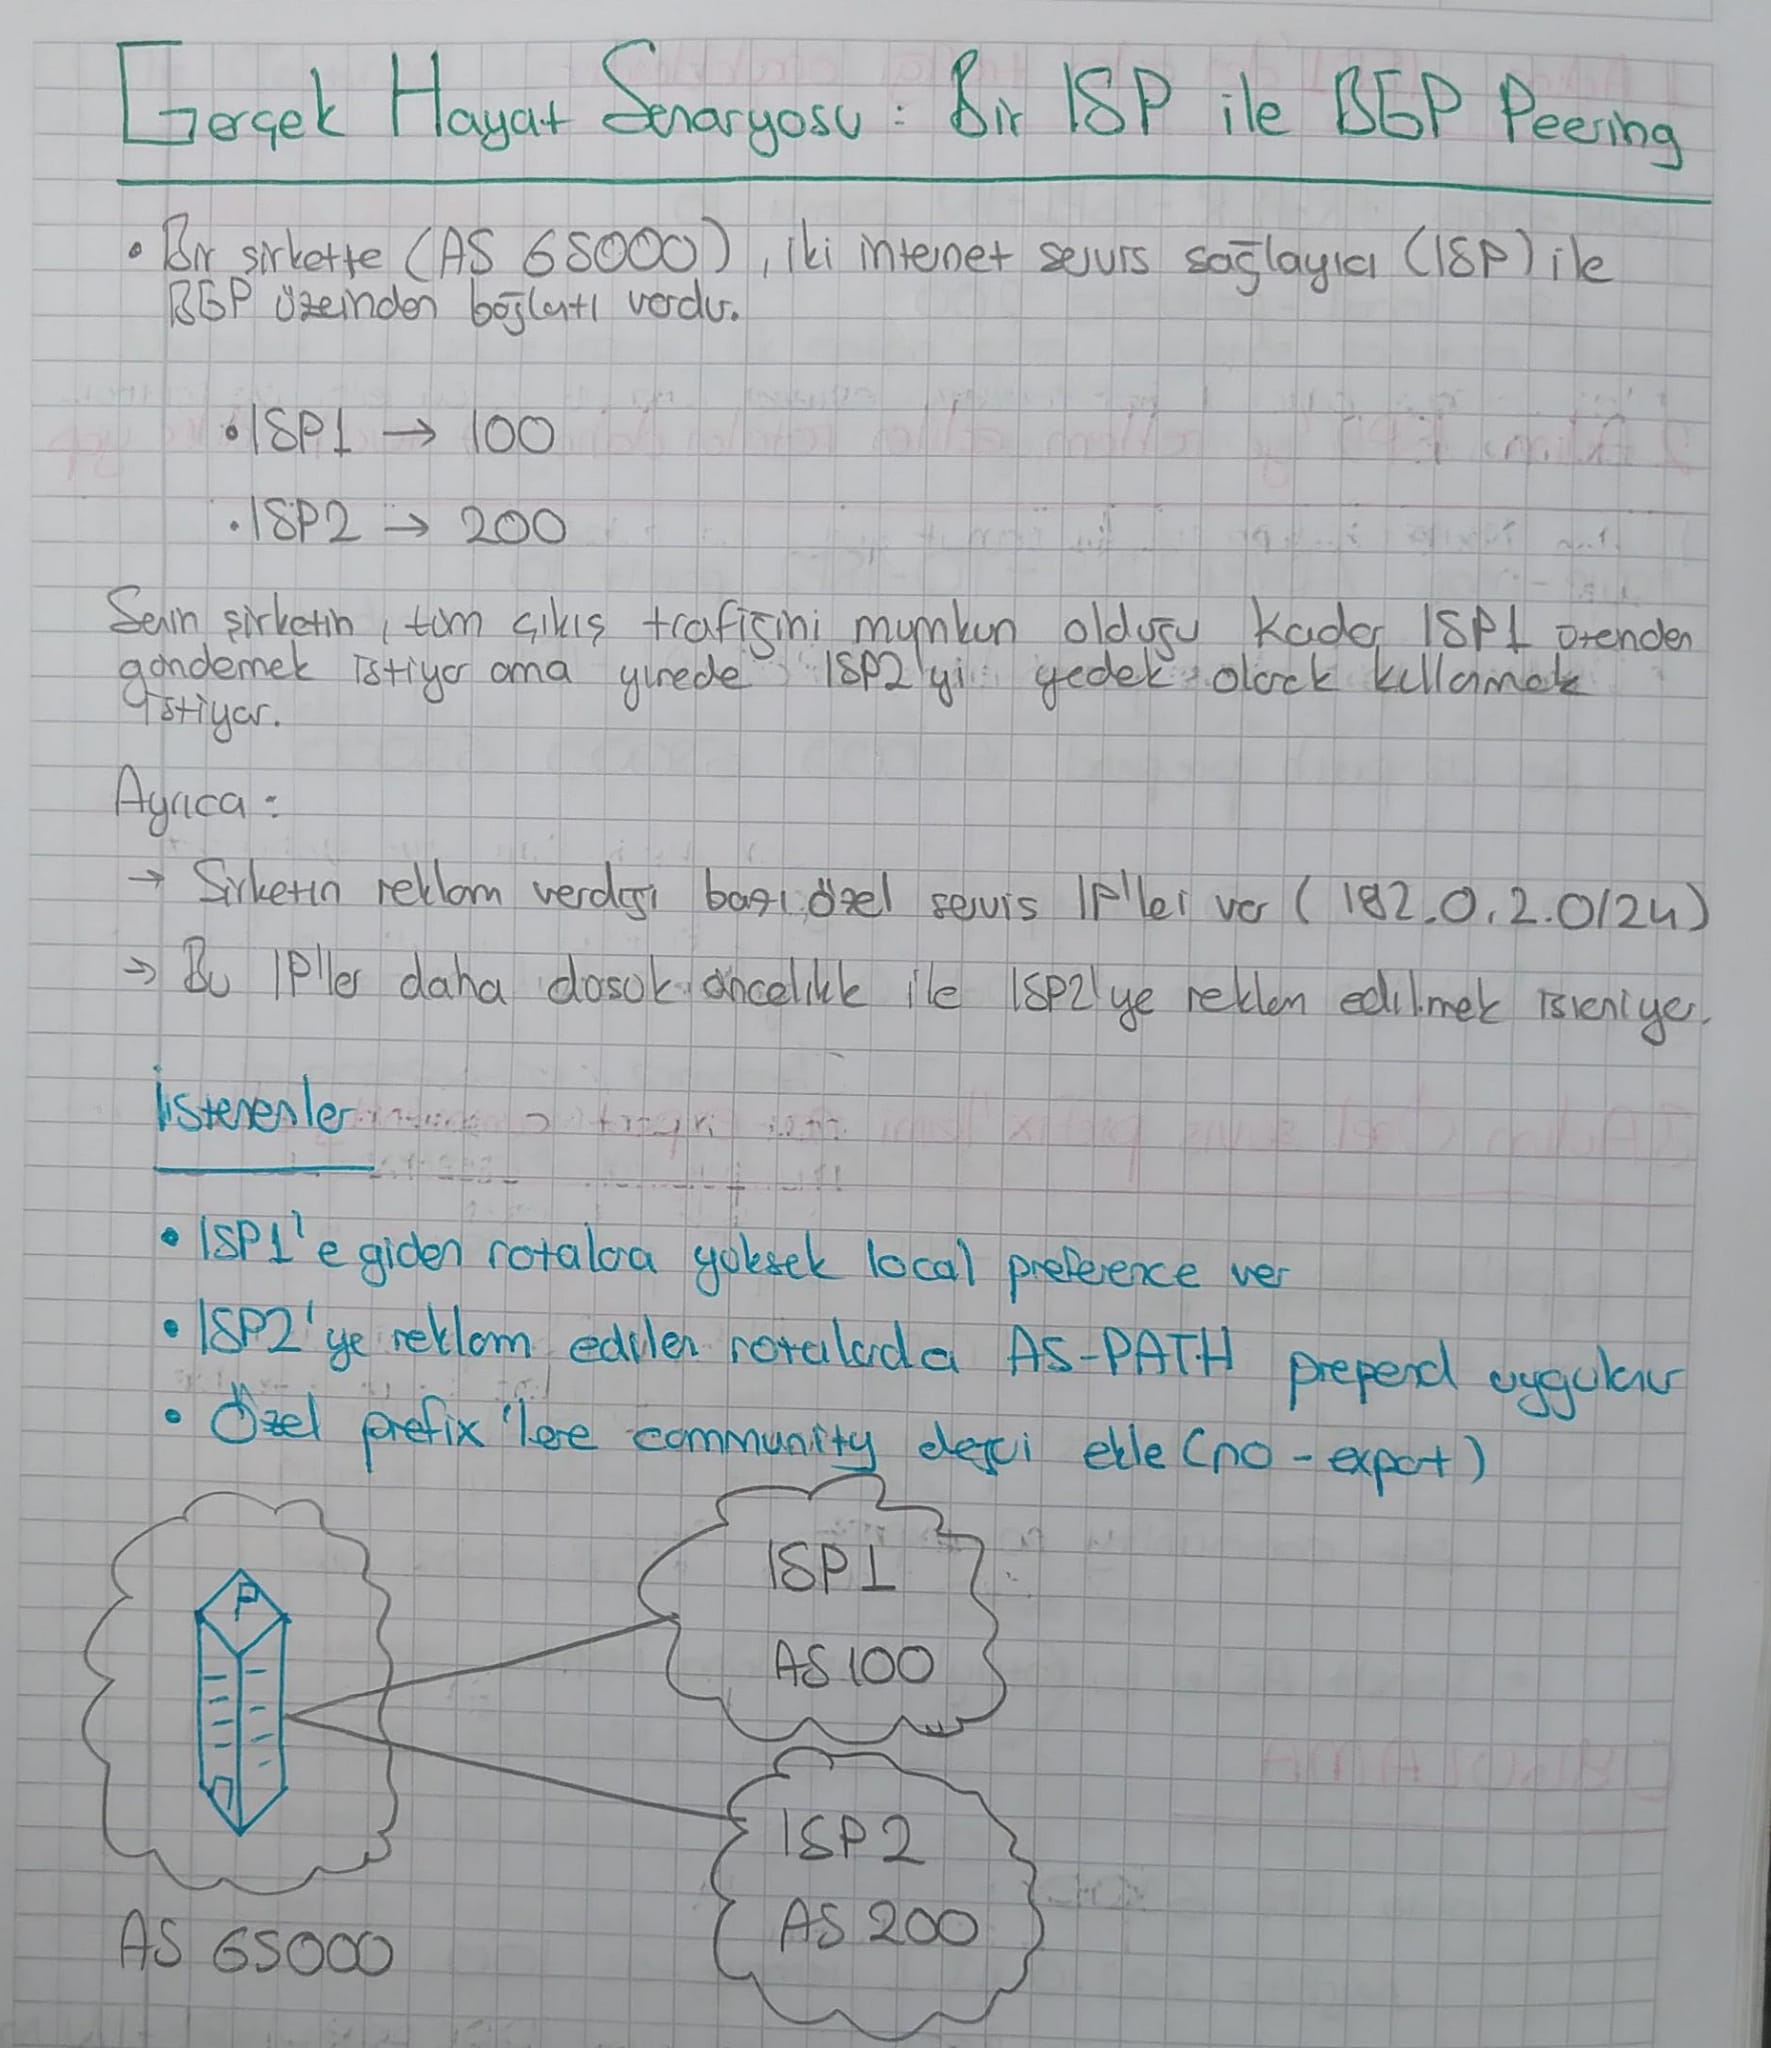 Gerçek Hayat Senaryosu : Bir ISP ile BGP Peering
• Bir şirkette (AS 65000), iki internet servis sağlayıcı (ISP) ile
BGP üzeinden bağlantı vardır.
• ISP1 → 100
• ISP2 → 200
Senin şirketin, tüm çıkış trafiğini mümkün olduğu kadar ISP1 üzerinden
göndemek istiyor ama yinede ISP2'yi yedek olarak kullanmak
istiyor.
Ayrıca :
→ Şirketin reklam verdiği bazı özel servis IP'leri var (192.0.2.0/24)
→ Bu IP'ler daha düşük öncelikle ile ISP2'ye reklam edilmek isteniyor.
İstenenler
• ISP1'e giden rotalara yüksek local preference ver
• ISP2'ye reklam edilen rotalarda AS-PATH prepend uygulanır
• Özel prefix'lere community değeri ekle (no-export)
P
ISP1
AS 100
ISP2
AS 200
AS 65000